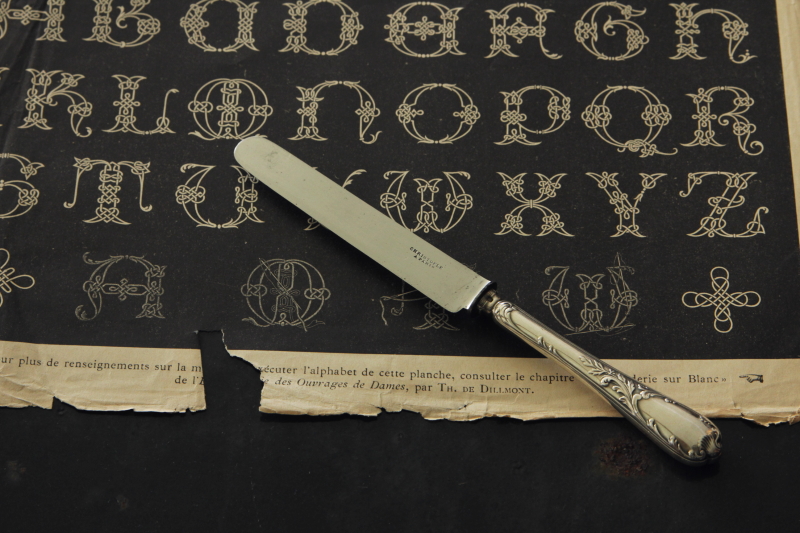 A B C D E F G H
K L M N O P Q R
S T U W X Y Z
A M
ur plus de renseignements sur la m écuter l'alphabet de cette planche, consulter le chapitre derie sur Blanc»
de l'E e des Ouvrages de Dames, par TH. DE DILLMONT.